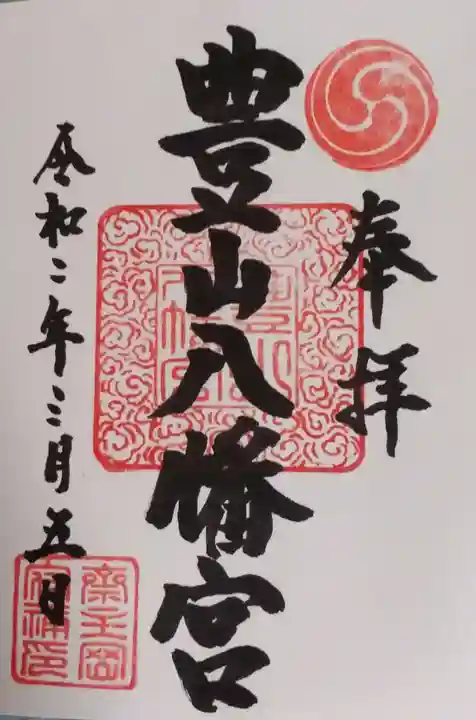 奉拝
豊山八幡宮
令和二年三月五日